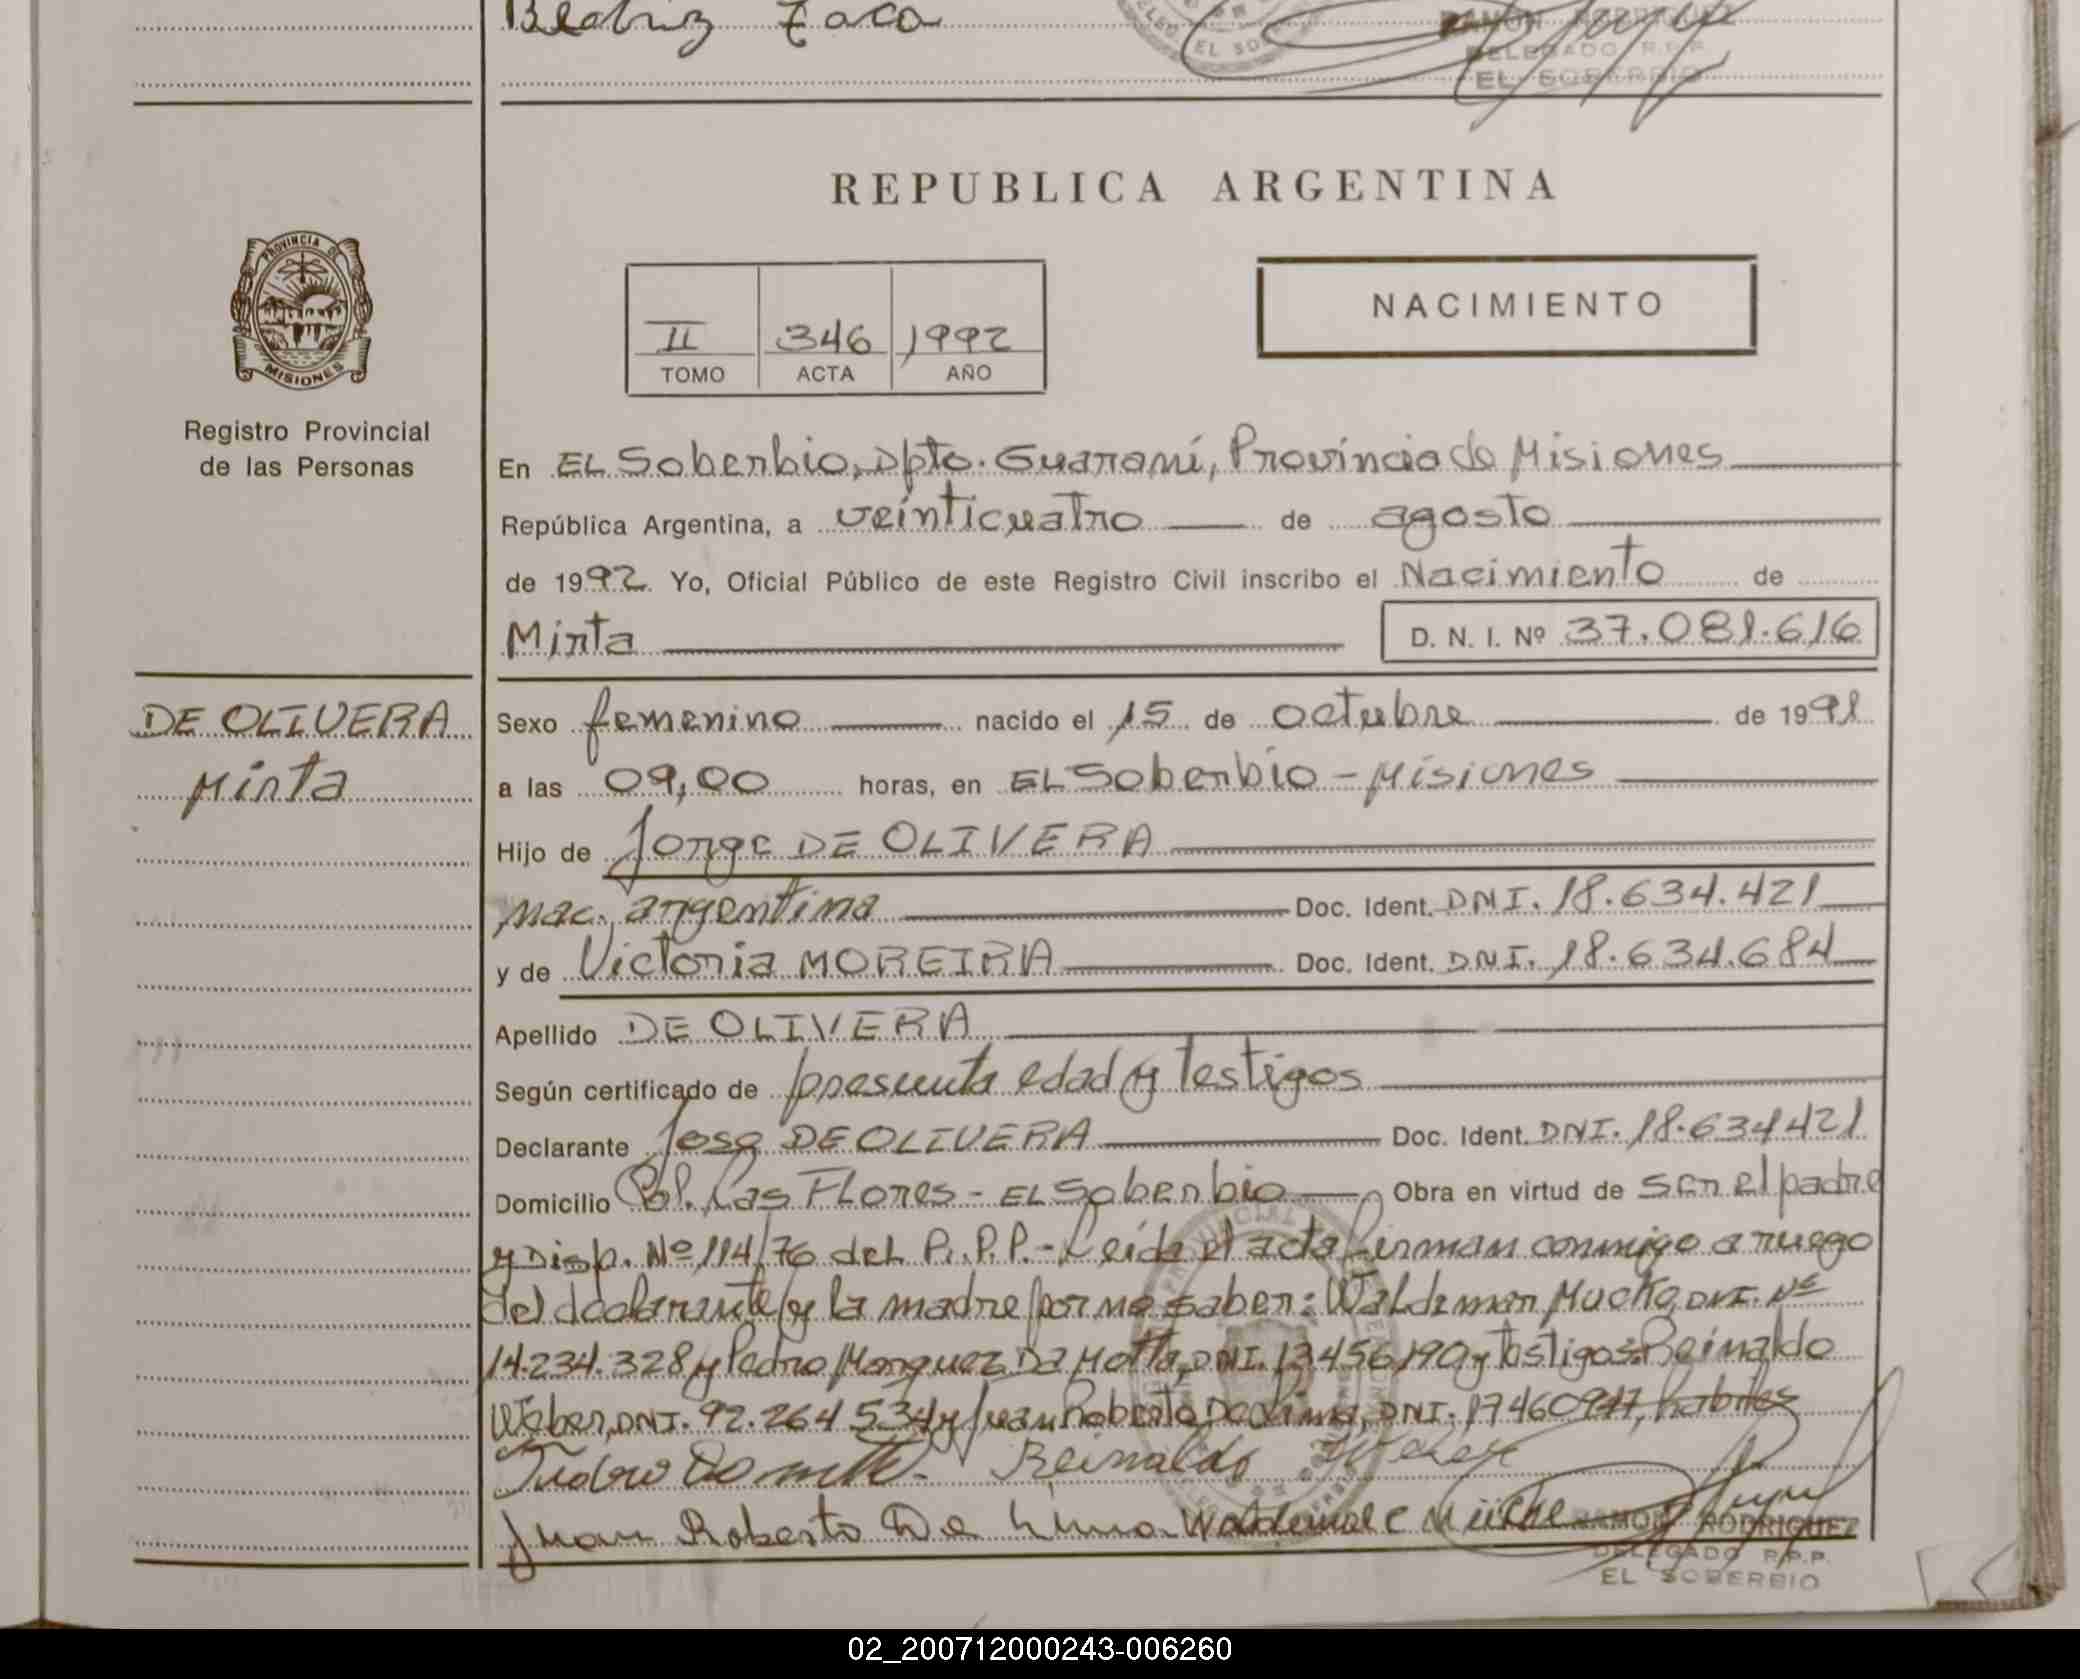 Beatriz
EL SOBERBIO
RAMON RODRIGUEZ
DELEGADO R.P.P.
EL SOBERBIO
REPUBLICA ARGENTINA
PROVINCIA DE
MISIONES
II 346 1992
TOMO ACTA AÑO
NACIMIENTO
Registro Provincial
de las Personas
En EL Soberbio, Dpto. Guaraní, Provincia de Misiones
República Argentina, a veinticuatro de agosto
de 1992 Yo, Oficial Público de este Registro Civil inscribo el Nacimiento de
Mirta D. N. I. Nº 37.081.616
DE OLIVERA
Mirta
Sexo femenino nacido el 15 de octubre de 1991
a las 09,00 horas, en EL Soberbio - Misiones
Hijo de Jorge DE OLIVERA
nac. argentina Doc. Ident. DNI. 18.634.421
y de Victoria MOREIRA Doc. Ident. DNI. 18.634.684
Apellido DE OLIVERA
Según certificado de presunta edad y testigos
Declarante Jose DE OLIVERA Doc. Ident. DNI. 18.634421
Domicilio Col. Las Flores - EL Soberbio Obra en virtud de ser el padre
y Disp. Nº 114/76 del R.P.P. - Leida el acta firman conmigo a ruego
del declarante y la madre por no saber: Waldemar Mucke, DNI. Nº
14.234.328 y Pedro Marquez Da Motta, DNI. 13456190 y testigos: Reinaldo
Weber, DNI. 92.264534 y Juan Roberto De Lima, DNI. 17460947, habiles
Reinaldo Weber
Juan Roberto De Lima Waldemar Mücke
RAMON RODRIGUEZ
DELEGADO R.P.P.
EL SOBERBIO
02_200712000243-006260